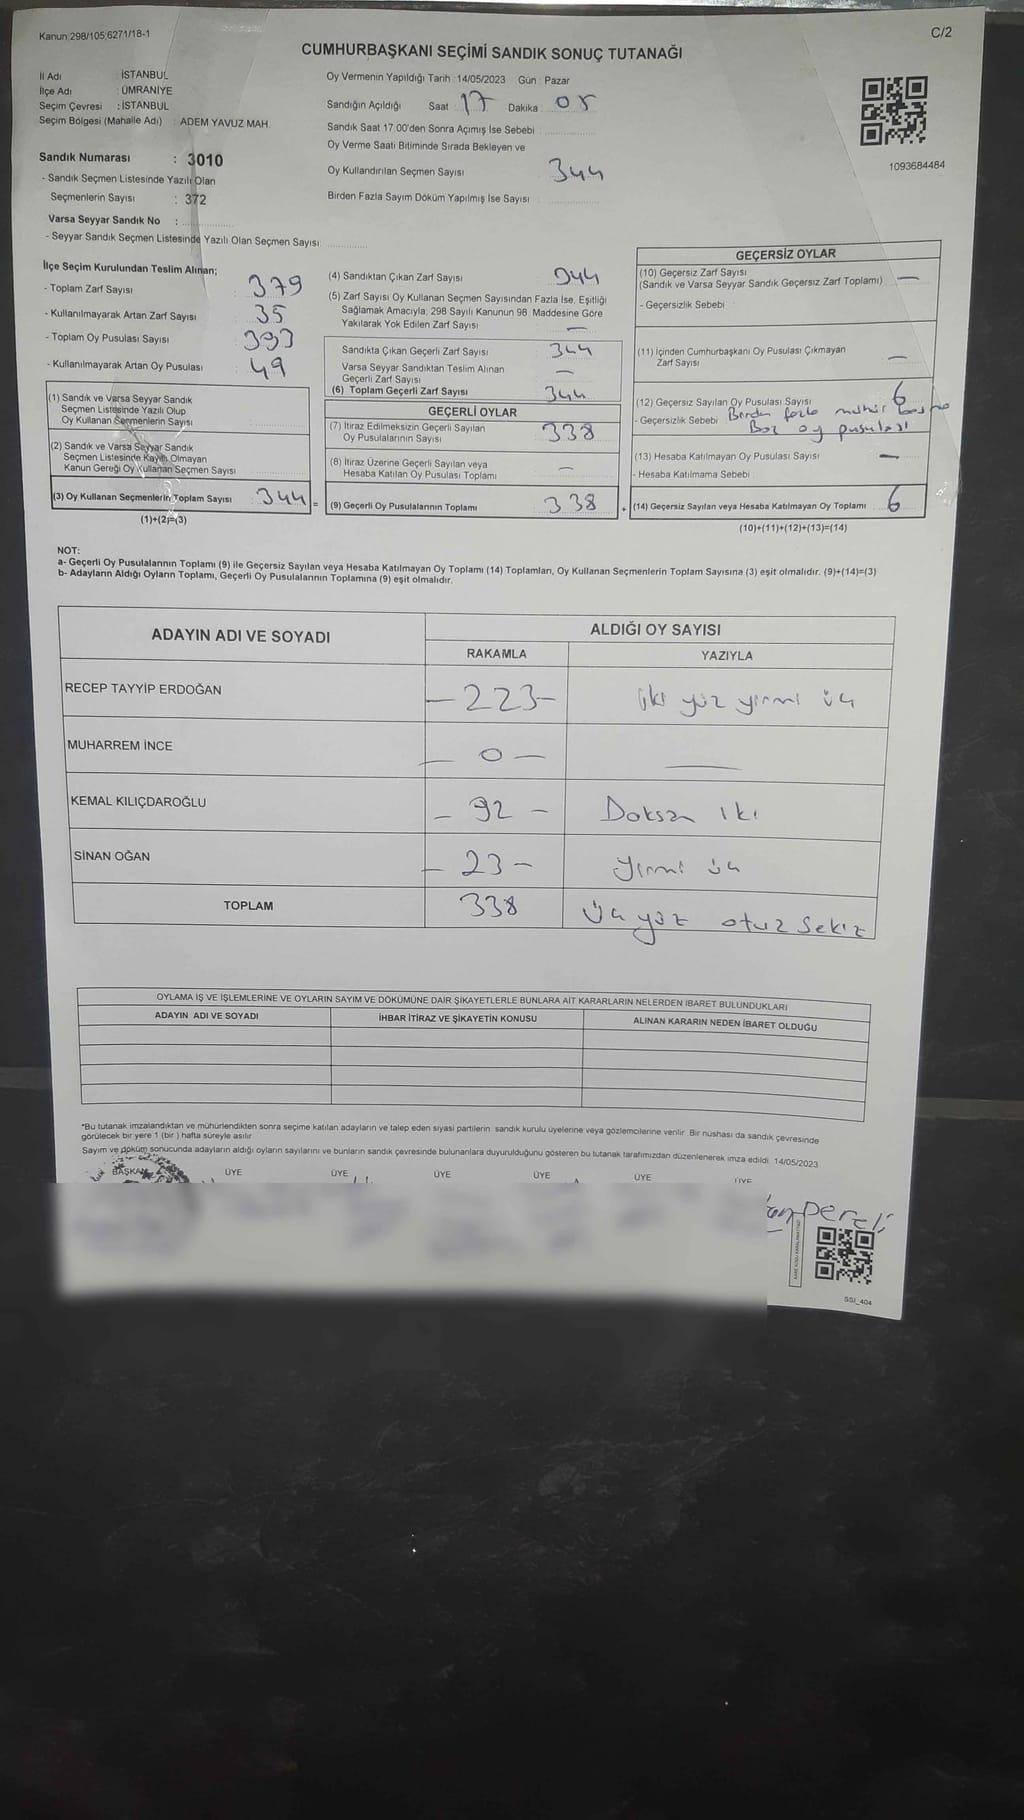 Kanun:298/105,6271/18-1
C/2
CUMHURBAŞKANI SEÇİMİ SANDIK SONUÇ TUTANAĞI
İl Adı : İSTANBUL
İlçe Adı : ÜMRANİYE
Seçim Çevresi : İSTANBUL
Seçim Bölgesi (Mahalle Adı) : ADEM YAVUZ MAH.
Sandık Numarası : 3010
- Sandık Seçmen Listesinde Yazılı Olan
Seçmenlerin Sayısı : 372
Varsa Seyyar Sandık No :
- Seyyar Sandık Seçmen Listesinde Yazılı Olan Seçmen Sayısı:
Oy Vermenin Yapıldığı Tarih : 14/05/2023 Gün : Pazar
Sandığın Açıldığı Saat 17 Dakika : 05
Sandık Saat 17:00'den Sonra Açımış İse Sebebi
Oy Verme Saati Bitiminde Sırada Bekleyen ve
Oy Kullandırılan Seçmen Sayısı 344
Birden Fazla Sayım Döküm Yapılmış İse Sayısı
1093684484
İlçe Seçim Kurulundan Teslim Alınan;
- Toplam Zarf Sayısı 379
- Kullanılmayarak Artan Zarf Sayısı 35
- Toplam Oy Pusulası Sayısı 393
- Kullanılmayarak Artan Oy Pusulası 49
(1) Sandık ve Varsa Seyyar Sandık
Seçmen Listesinde Yazılı Olup
Oy Kullanan Seçmenlerin Sayısı
(2) Sandık ve Varsa Seyyar Sandık
Seçmen Listesinde Kayıtlı Olmayan
Kanun Gereği Oy Kullanan Seçmen Sayısı
(3) Oy Kullanan Seçmenlerin Toplam Sayısı 344 =
(1)+(2)=(3)
(4) Sandıktan Çıkan Zarf Sayısı 344
(5) Zarf Sayısı Oy Kullanan Seçmen Sayısından Fazla İse, Eşitliği
Sağlamak Amacıyla; 298 Sayılı Kanunun 98. Maddesine Göre
Yakılarak Yok Edilen Zarf Sayısı —
Sandıkta Çıkan Geçerli Zarf Sayısı 344
Varsa Seyyar Sandıktan Teslim Alınan
Geçerli Zarf Sayısı —
(6) Toplam Geçerli Zarf Sayısı 344
GEÇERLİ OYLAR
(7) İtiraz Edilmeksizin Geçerli Sayılan
Oy Pusulalarının Sayısı 338
(8) İtiraz Üzerine Geçerli Sayılan veya
Hesaba Katılan Oy Pusulası Toplamı —
(9) Geçerli Oy Pusulalarının Toplamı 338 +
GEÇERSİZ OYLAR
(10) Geçersiz Zarf Sayısı
(Sandık ve Varsa Seyyar Sandık Geçersiz Zarf Toplamı) —
- Geçersizlik Sebebi
(11) İçinden Cumhurbaşkanı Oy Pusulası Çıkmayan
Zarf Sayısı —
(12) Geçersiz Sayılan Oy Pusulası Sayısı 6
- Geçersizlik Sebebi Birden fazla mühür basma
Boz oy pusulası
(13) Hesaba Katılmayan Oy Pusulası Sayısı —
- Hesaba Katılmama Sebebi
(14) Geçersiz Sayılan veya Hesaba Katılmayan Oy Toplamı 6
(10)+(11)+(12)+(13)=(14)
NOT:
a- Geçerli Oy Pusulalarının Toplamı (9) ile Geçersiz Sayılan veya Hesaba Katılmayan Oy Toplamı (14) Toplamları, Oy Kullanan Seçmenlerin Toplam Sayısına (3) eşit olmalıdır. (9)+(14)=(3)
b- Adayların Aldığı Oyların Toplamı, Geçerli Oy Pusulalarının Toplamına (9) eşit olmalıdır.
ADAYIN ADI VE SOYADI
ALDIĞI OY SAYISI
RAKAMLA YAZIYLA
RECEP TAYYİP ERDOĞAN — 223 — iki yüz yirmi üç
MUHARREM İNCE — 0 — —
KEMAL KILIÇDAROĞLU — 92 — Doksan iki
SİNAN OĞAN — 23 — Yirmi üç
TOPLAM 338 Üç yüz otuz sekiz
OYLAMA İŞ VE İŞLEMLERİNE VE OYLARIN SAYIM VE DÖKÜMÜNE DAİR ŞİKAYETLERLE BUNLARA AİT KARARLARIN NELERDEN İBARET BULUNDUKLARI
ADAYIN ADI VE SOYADI İHBAR İTİRAZ VE ŞİKAYETİN KONUSU ALINAN KARARIN NEDEN İBARET OLDUĞU
*Bu tutanak imzalandıktan ve mühürlendikten sonra seçime katılan adayların ve talep eden siyasi partilerin sandık kurulu üyelerine veya gözlemcilerine verilir. Bir nüshası da sandık çevresinde
görülecek bir yere 1 (bir ) hafta süreyle asılır
Sayım ve döküm sonucunda adayların aldığı oyların sayılarını ve bunların sandık çevresinde bulunanlara duyurulduğunu gösteren bu tutanak tarafımızdan düzenlenerek imza edildi. 14/05/2023
BAŞKAN ÜYE ÜYE ÜYE ÜYE ÜYE ÜYE
SSI_404